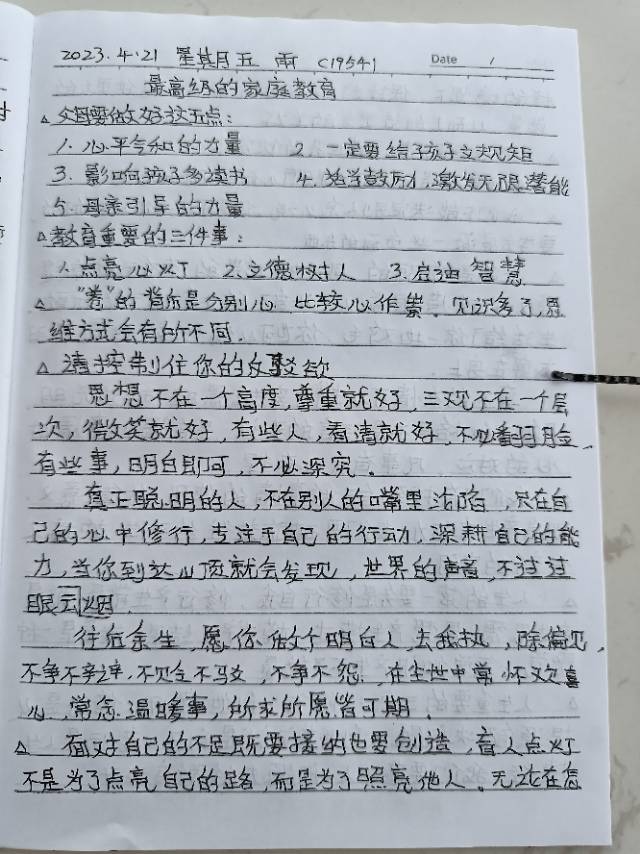 2023.4.21 星期五 雨 (1954) Date /
最高级的家庭教育
△父母要做好这五点:
1. 心平气和的力量 2. 一定要给孩子立规矩
3. 影响孩子多读书 4. 适当鼓励,激发无限潜能
5. 母亲引导的力量
△教育重要的三件事:
1. 点亮心灯 2. 立德树人 3. 启迪智慧
△ "卷"的背后是分别心 比较心作祟。见识多了,思
维方式会有所不同.
△ 请控制住你的反驳欲
思想不在一个高度,尊重就好,三观不在一个层
次,微笑就好,有些人,看清就好,不必翻脸,
有些事,明白即可,不必深究。
真正聪明的人,不在别人的嘴里沽陷,只在自
己的心中修行,专注于自己的行动,深耕自己的能
力,当你到达山顶就会发现,世界的声音,不过过
眼云烟.
往后余生,愿你做个明白人,去我执,除偏见,
不争不辩,不见全不骂,不争不怨.在尘世中常怀欢喜
心,常念温暖事,所求所愿皆可期.
△ 面对自己的不足既要接纳也要创造,育人点灯
不是为了点亮自己的路,而是为了照亮他人。无论在怎